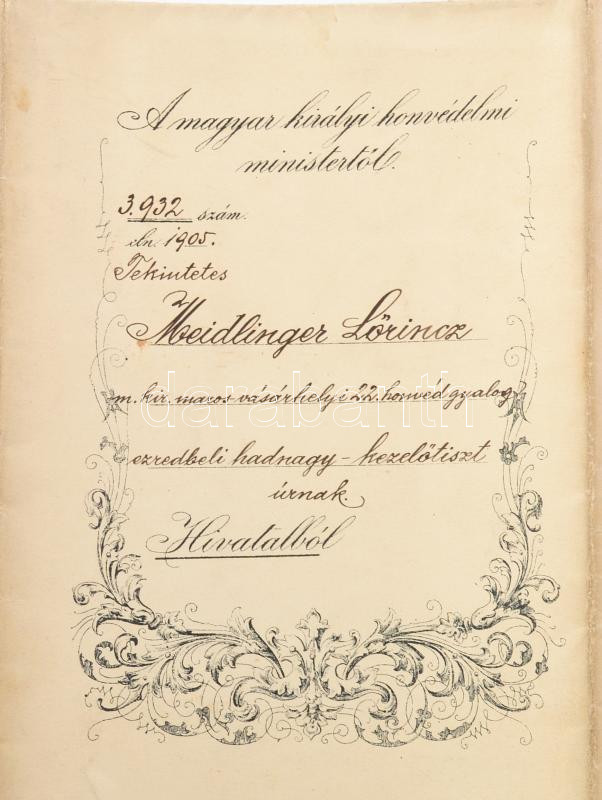 A magyar királyi honvédelmi
ministertől.
3.932 szám.
eln. 1905.
Tekintetes
Meidlinger Lőrincz
m. kir. maros vásárhelyi 22. honvéd gyalog
ezredbeli hadnagy - kezelőtiszt
úrnak
Hivatalból
darabanth